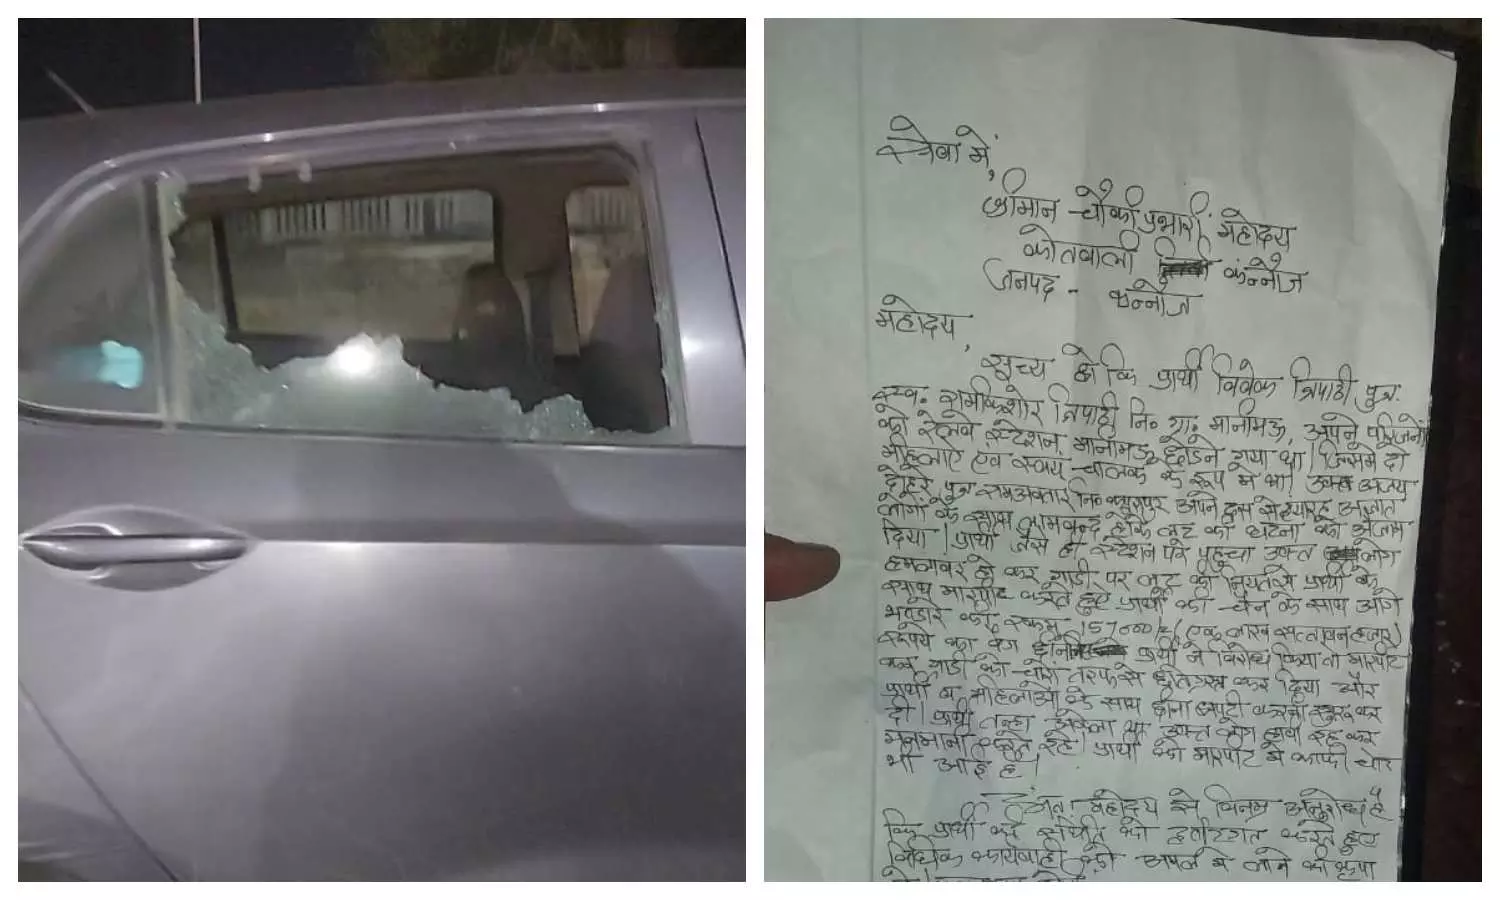 सेवा में,
श्रीमान चौकी प्रभारी महोदय
कोतवाली कन्नौज
जनपद - कन्नौज
महोदय,
सूच्य हो कि प्रार्थी विवेक त्रिपाठी पुत्र
स्व० रामकिशोर त्रिपाठी नि० ग्रा० मानीमऊ, अपने परिजनों
को रेलवे स्टेशन मानीमऊ छोड़ने गया था। जिसमें दो
महिलाऐं एवं स्वयं चालक के रूप में था। उक्त अजय
दोहरे पुत्र रामअवतार नि० अपने दस से ग्यारह अज्ञात
लोगों के साथ लामबन्द होके लूट की घटना को अंजाम
दिया। प्रार्थी जैसे ही स्टेशन पर पहुंचा उक्त लोग
हमलावर हो कर गाड़ी पर लूट की नियत से प्रार्थी के
साथ मारपीट करते हुए प्रार्थी की चैन के साथ आगे
रकम 157000/- (एक लाख सत्तावन हजार)
रूपये का बैग प्रार्थी ने विरोध किया तो मारपीट
कर गाड़ी को चारों तरफ से क्षतिग्रस्त कर दिया और
प्रार्थी व महिलाओं के साथ छीना झपटी करना शुरू कर
दी। प्रार्थी तन्हा अकेला था उक्त लोग हावी हो कर
मनमानी करते रहे। प्रार्थी को मारपीट में काफी चोट
भी आई है।
अतः महोदय से विनम्र अनुरोध है
कि प्रार्थी की को दृष्टिगत करते हुए
विधिक कार्यवाही को अमल में लाने की कृपा